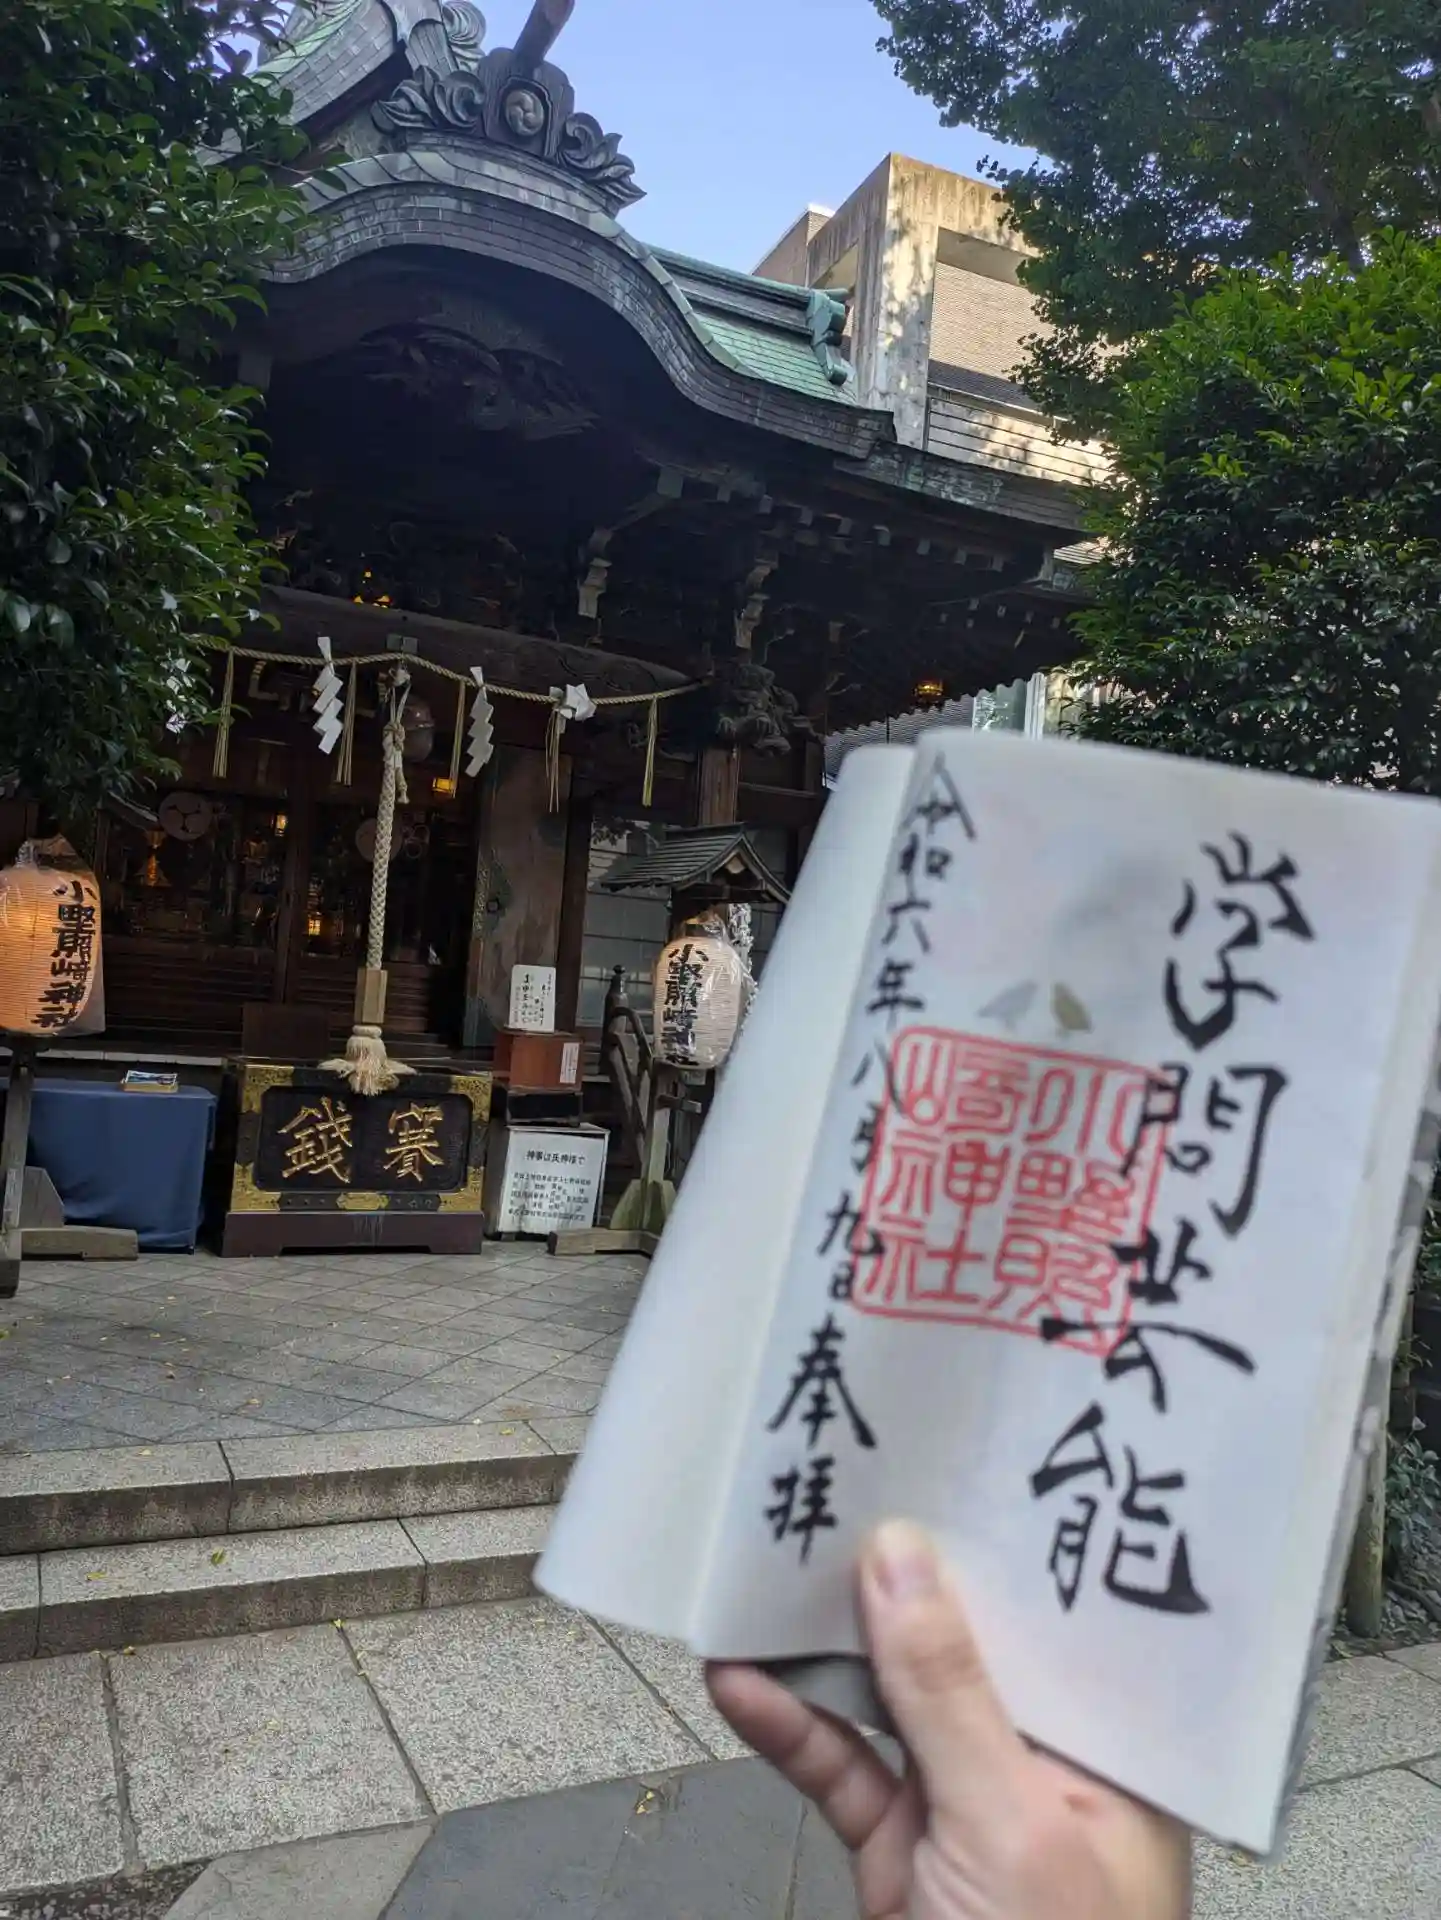 小野照崎神社
小野照崎神社
賽銭
神事は氏神様で
学問芸能
小野照崎神社
令和六年八月九日
奉拝